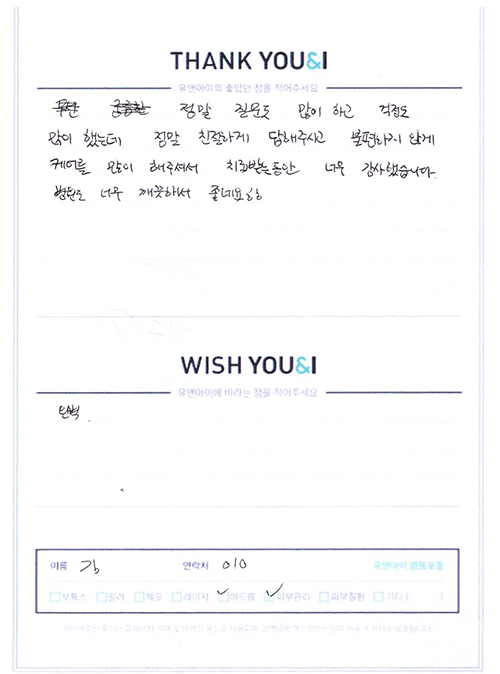 THANK YOU&I
유앤아이의 좋았던 점을 적어주세요
정말 질문도 많이 하고 걱정도
많이 했는데 정말 친절하게 답해주시고 불편하지 않게
케어를 많이 해주셔서 치료받는동안 너무 감사했습니다.
병원도 너무 깨끗해서 좋네요ㅎㅎ
WISH YOU&I
유앤아이에 바라는 점을 적어주세요
완벽.
이름 연락처 010 유앤아이 명동포점
보톡스 필러 제모 레이저 여드름 피부관리 피부질환 기타 ( )